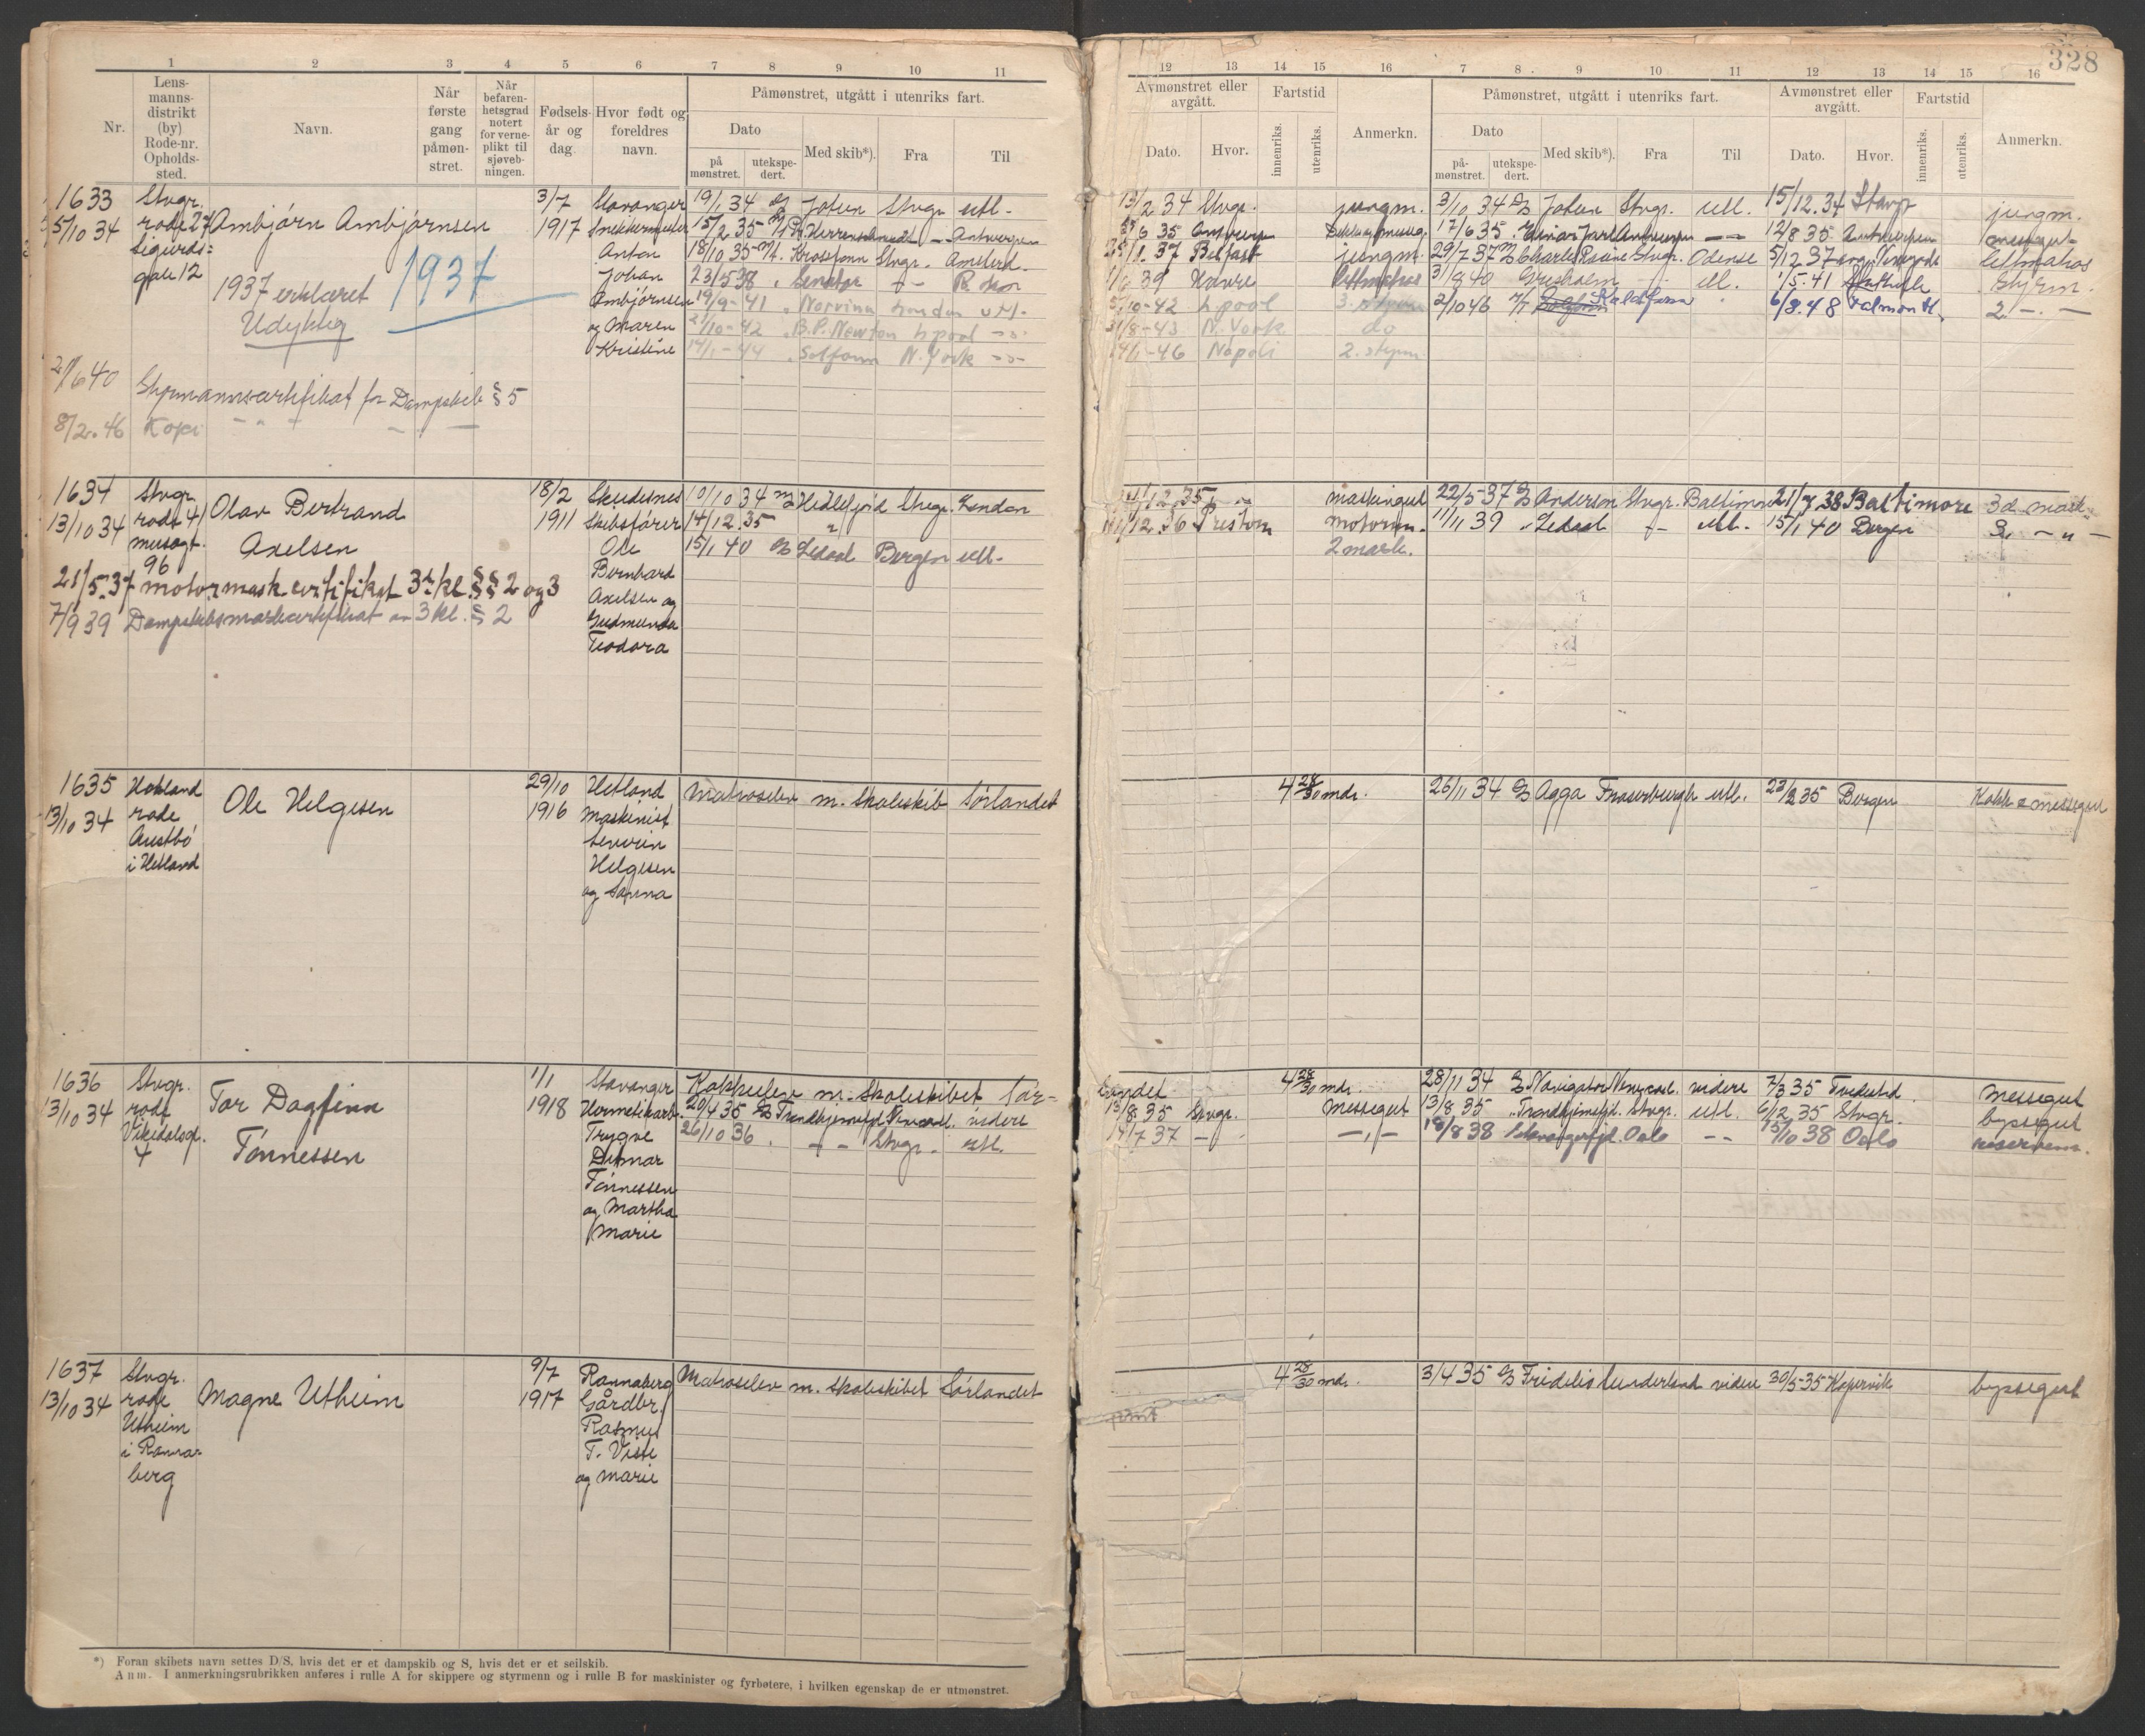 328
1 2 3 4 5 6 7 8 9 10 11
Nr.
Lens-
manns-
distrikt
(by)
Rode-nr.
Opholds-
sted.
Navn.
Når
første
gang
påmøn-
stret.
Når
befaren-
hetsgrad
notert
for verne-
plikt til
sjøveb-
ningen.
Fødsels-
år og
dag.
Hvor født og
foreldres
navn.
Påmønstret, utgått i utenriks fart.
Dato
på
mønstret.
utekspe-
dert.
Med skib*).
Fra
Til
12 13 14 15 16 7 8 9 10 11 12 13 14 15 16
Avmønstret eller
avgått.
Dato.
Hvor.
Fartstid
innenriks.
utenriks.
Anmerkn.
Påmønstret, utgått i utenriks fart.
Dato
på-
mønstret.
utekspe-
dert.
Med skib*).
Fra
Til
Avmønstret eller
avgått.
Dato.
Hvor.
Fartstid
innenriks.
utenriks.
Anmerkn.
1633
5/10 34
Stvgr.
rode 27
Sigurds=
gate 12
Ambjørn Ambjørnsen
1937 erklæret
Udyktig
1937
3/7
1917
Stavanger
Anton
Johan
Ambjørnsen
og Maren
Kristine
19/1 34 Jotun Stvgr. utl.
15/2 35 Antwerpen
18/10 35 M/t. Krossfonn Stvgr. Amsterd.
23/5 38 Senator
19/9-41 Norvinn London utl.
/10-42 B.P. Newton L.pool
14/1-44 Solfonn N. York
640 Styrmannscertifikat for Dampskib § 5
8/2.46 Kopi
13/2 34 Stvgr. jungm. 3/10 34 Jotun Stvgr. utl. 15/12.34 Stavgr jungm.
6 35 17/6 35 12/8 35 Antwerpen
1.37 Belfast jungm. 29/7 37 Stvgr. Odense 5/12 37 lettmatros
39 Havre lettmatros 40 utl. 1/5.41 Styrm.
-42 L pool 3. styrm 2/10 46 M/T Kaldfonn 6/8.48 Falmouth 2. - -
31/8-43 N. York do
14/1-46 Napoli 2. styrm
1634
13/10 34
Stvgr.
rode 41
musegt.
96
Olav Bertrand
Axelsen
18/2
1911
Skudesnes
Skibsfører
Ole
Bernhard
Axelsen og
Gudmunda
Teodora
10/10 34 Stvgr. London
14/12.35 "
15/1 40 Bergen utl.
21/5.37 motormask.certifikat 3dkl. §§ 2 og 3
7/9 39 Dampskibsmaskcertifikat av 3 kl. § 2
12.35 maskingut 22/5-37 Anderson Stvgr. Baltimore 21/7 38 Baltimore 3d mask.
12.36 Preston motorm. 11/11 39 utl. 15/1 40 Bergen 3. - " -
2 mask.
1635
13/10 34
Hetland
rode
Austbø
i Hetland
Ole Helgesen
29/10
1916
Hetland
maskinist
Severin
Helgesen
og Sanna
Matroselev m. Skoleskib Sørlandet
4 28/30 mdr. 26/11 34 Agga Fraserburgh utl. 23/2 35 Bergen Kokk & messegut
1636
13/10 34
Stvgr.
rode
Vikedalsgt.
4
Tor Dagfinn
Tønnessen
1/1
1918
Stavanger
Hermetikarb.
Trygve
Ditmar
Tønnessen
og Martha
Marie
Kokkelev m. Skoleskibet Sør-
20/4 35 Trondhjemsfjd. Newcastl. videre
26/10 36 - " - Stvgr. utl.
landet 4 28/30 mdr. 28/11 34 Navigator Newcastl. videre 7/3 35 Tvedestd. messegut
13/8 35 Stvgr. Messegut 13/8 35 Trondhjemsfjd. Stvgr. utl. 6/12 35 Stvgr. byssegut
14/7 37 - - " - 18/8 38 Stavangerfjd. Oslo - - 15/10 38 Oslo reservem.
1637
13/10 34
Stvgr.
rode
Utheim
i Randa-
berg
Magne Utheim
9/7
1917
Randaberg
Gårdbr.
Rasmus
T. Viste
og Marie
Matroselev m. Skoleskibet Sørlandet
4 28/30 mdr. 3/4 35 Fidelio Sunderland videre 30/5-35 Kopervik byssegut
*) Foran skibets navn settes D/S, hvis det er et dampskib og S, hvis det er et seilskib.
Anm. I anmerkningsrubrikken anføres i rulle A for skippere og styrmenn og i rulle B for maskinister og fyrbøtere, i hvilken egenskap de er utmønstret.